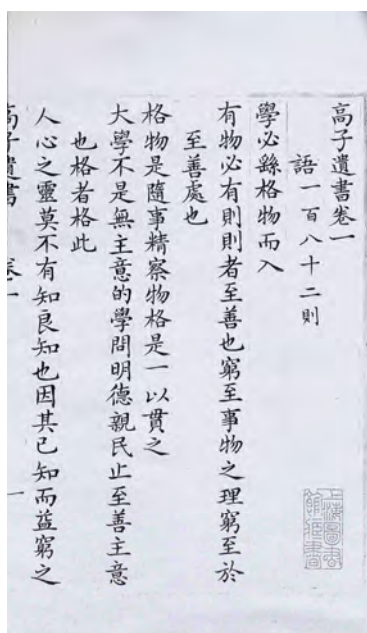 高子遺書卷一
語一百八十二則
學必繇格物而入
有物必有則則者至善也窮至事物之理窮至於
至善處也
格物是隨事精察物格是一以貫之
大學不是無主意的學問明德親民止至善主意
也格者格此
人心之靈莫不有知良知也因其已知而益窮之
高子遺書 卷一 一
上海圖書館藏書